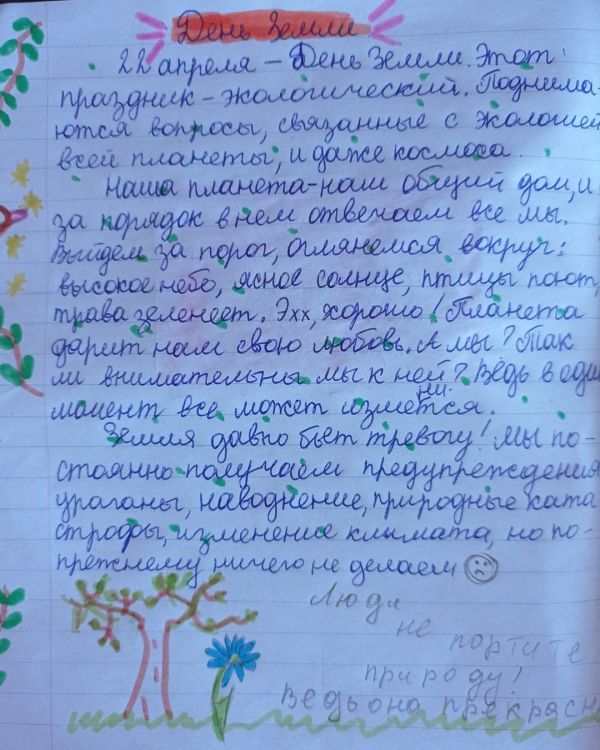 День Земли.
22 апреля – День Земли. Этот
праздник – экологический. Поднима-
ются вопросы, связанные с экологией
всей планеты, и даже космоса.
Наша планета – наш общий дом, и
за порядок в нем отвечаем все мы.
Выйдем за порог, оглянемся вокруг:
высокое небо, ясное солнце, птицы поют,
трава зеленеет. Эхх, хорошо! Планета
дарит нам свою любовь. А мы? Так
ли внимательны мы к ней? Ведь в один
момент все может изменится.
Земля давно бьет тревогу! Мы по-
стоянно получаем предупреждения
ураганы, наводнение, природные ката
строфы, изменение климата, но по-
прежнему ничего не делаем
Люди
не портите
природу!
Ведь она прекрасн